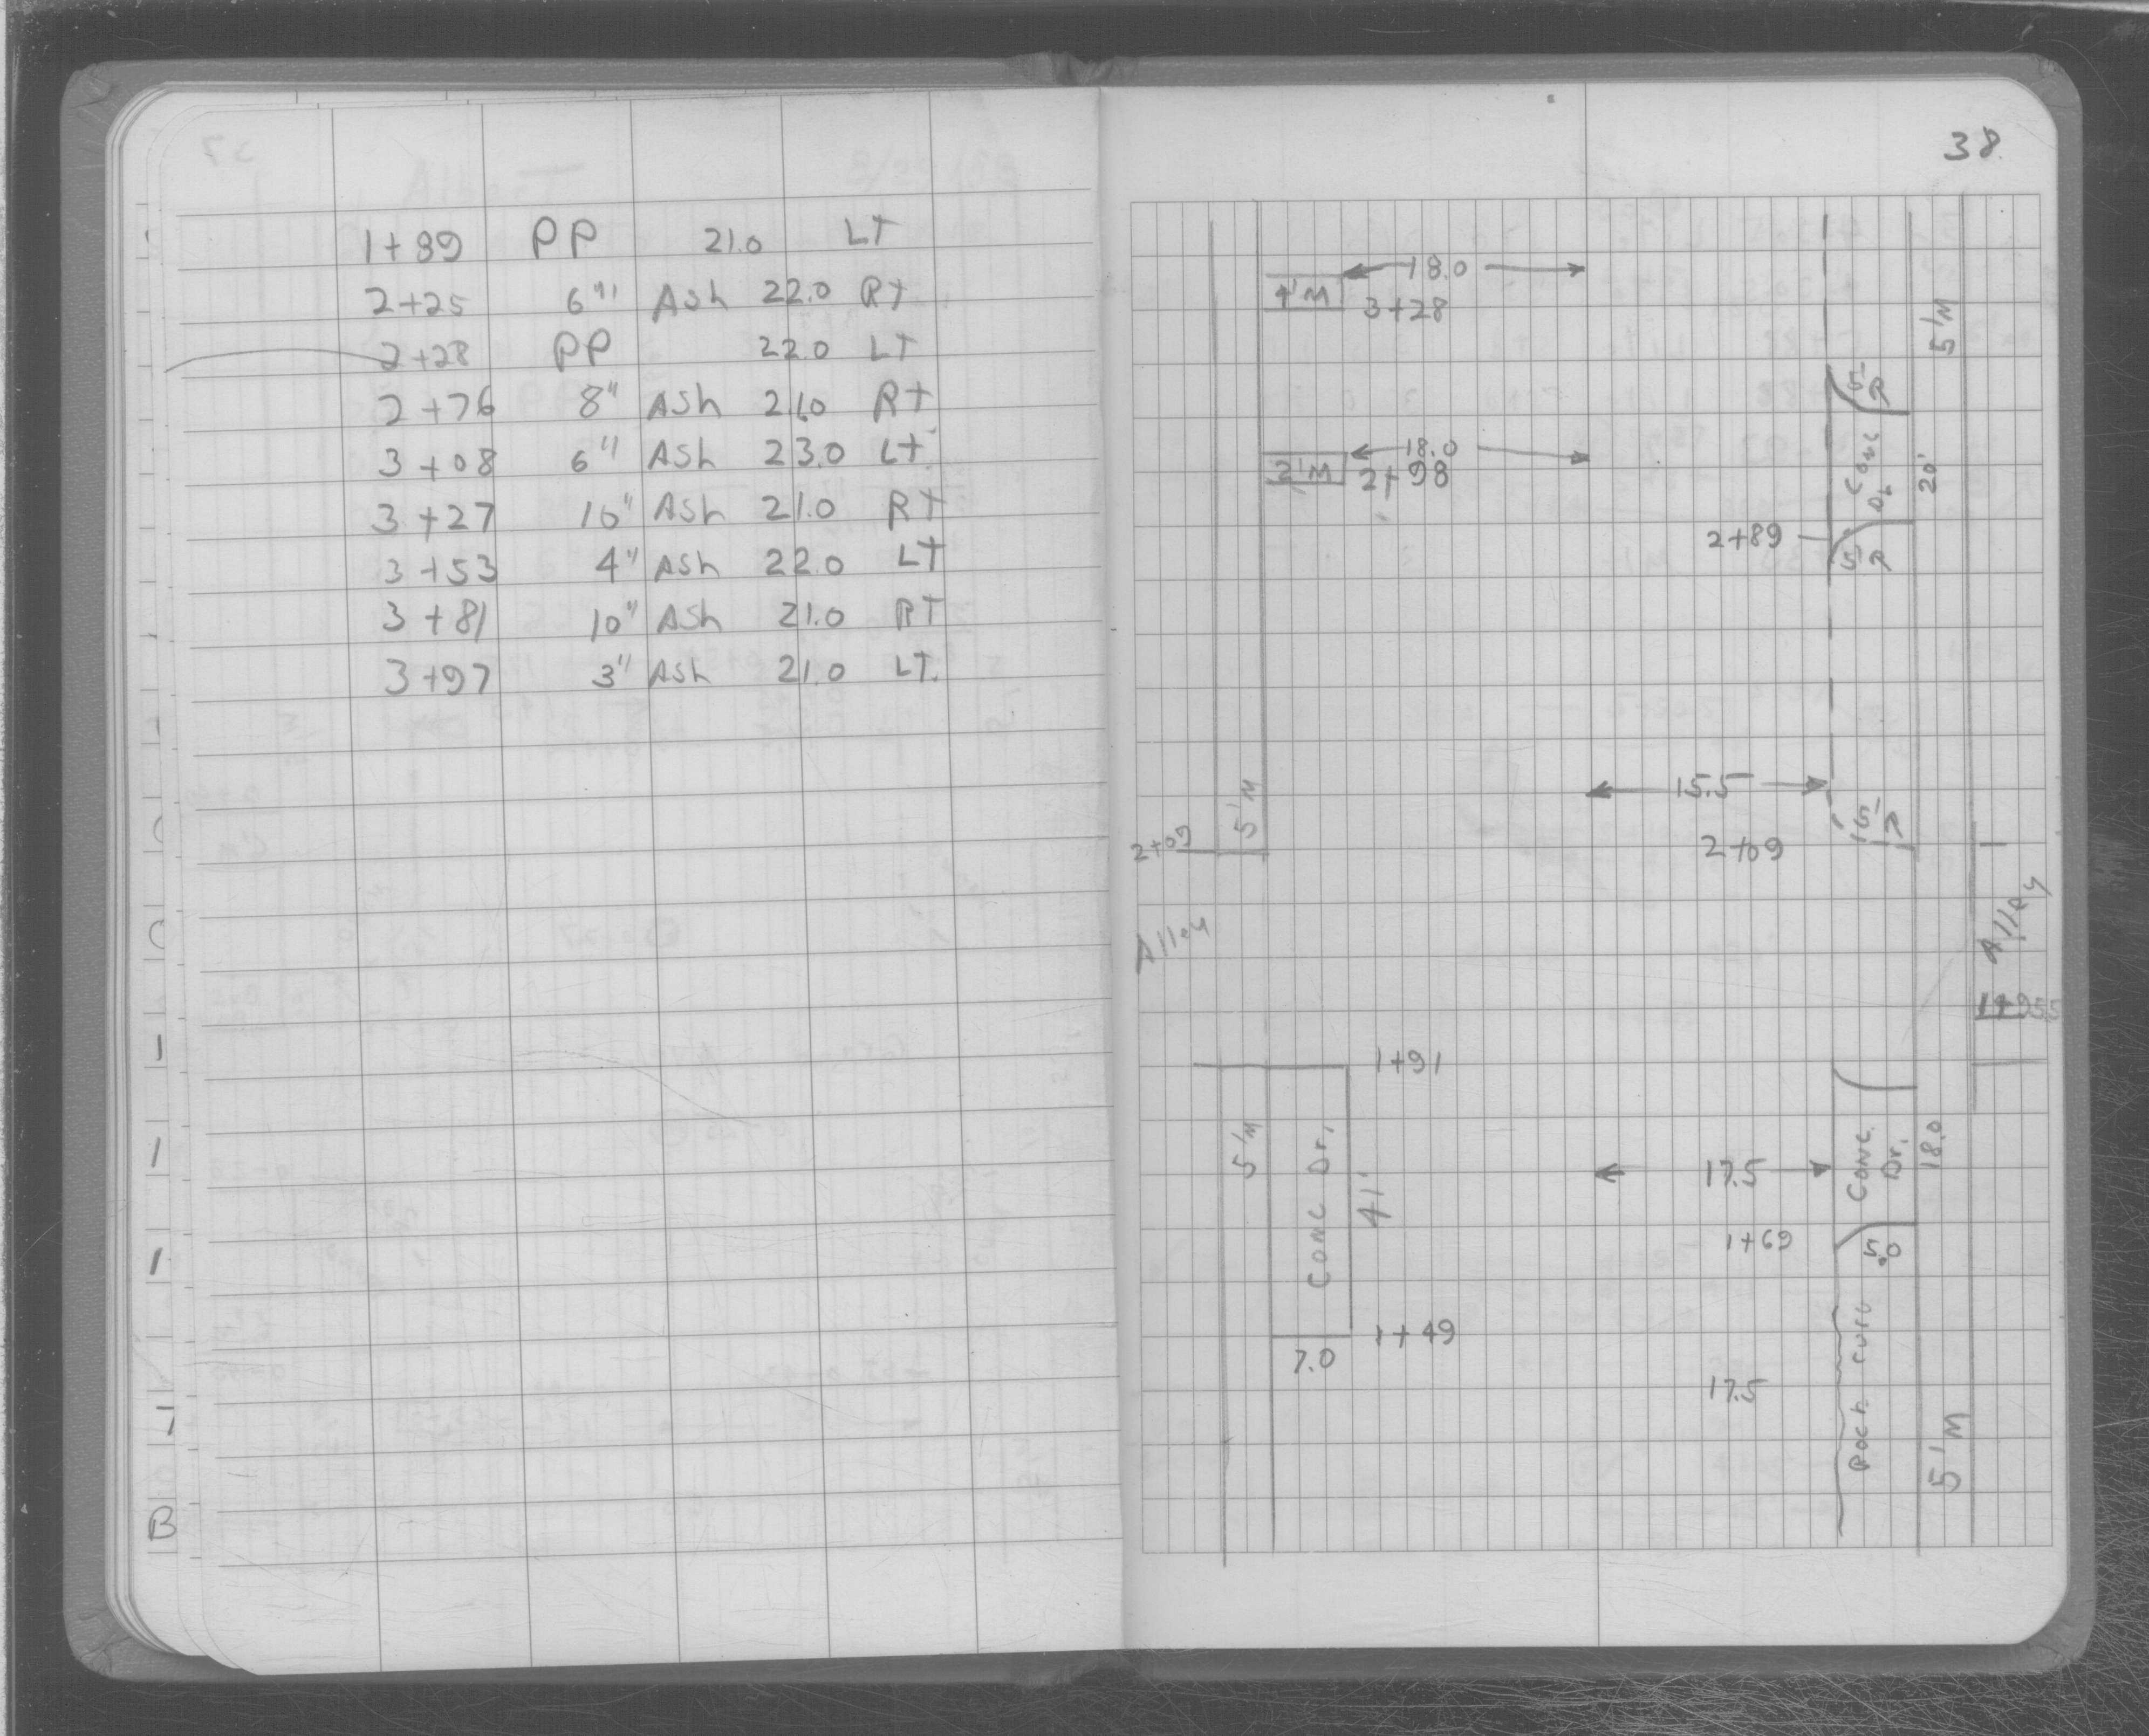 1+89 PP 21.0 LT
2+25 6" Ash 22.0 RT
2+28 PP 22.0 LT
2+76 8" Ash 21.0 RT
3+08 6" Ash 23.0 LT
3+27 10" Ash 21.0 RT
3+53 4" Ash 22.0 LT
3+81 10" Ash 21.0 RT
3+97 3" Ash 21.0 LT.
B
38
18.0
3+28
5'M
5'R
18.0
2'M 2+98
Conc
Dr
20'
2+89
5'R
15.5
5'M
2+09
2+09
15'R
Alley
Alley
1+955
1+91
5'M
Conc Dr.
41'
17.5
Conc.
Dr.
18.0
1+69
5.0
1+49
7.0
17.5
Rock curb
5'M